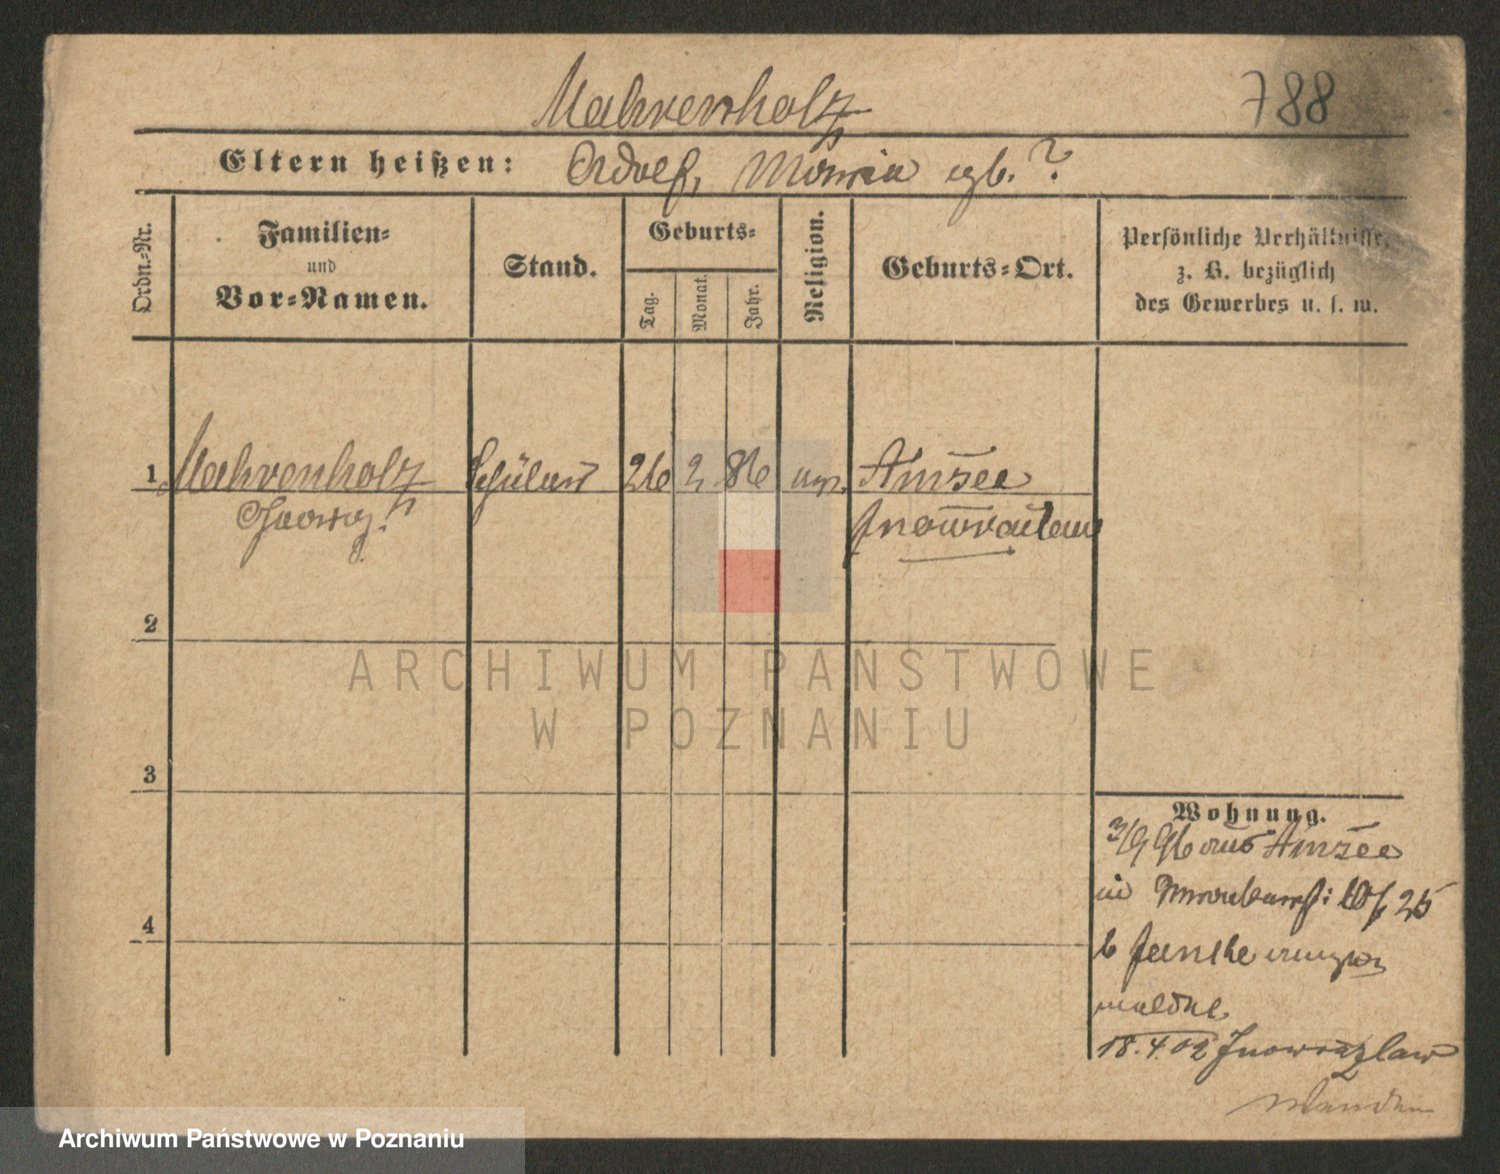 788
Mahrenholz
Eltern heißen: Adolf, Maria geb. ?
Ordn.-Nr.
Familien-
und
Vor-Namen.
Stand.
Geburts-
Tag.
Monat.
Jahr.
Religion.
Geburts-Ort.
Persönliche Verhältnisse,
z. B. bezüglich
des Gewerbes u. s. w.
1 Mahrenholz Schüler 26 2 86 Amsee
Georg.
2
3
4
Wohnung.
3/9 96 aus Amsee
in
18.4.02 Inowrazlaw
wenden
ARCHIWUM PAŃSTWOWE
W POZNANIU
Archiwum Państwowe w Poznaniu